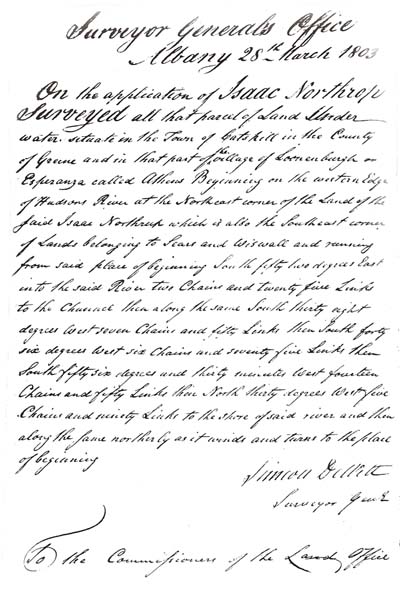 Surveyor General's Office
Albany 28th March 1803
On the application of Isaac Northrup
Surveyed all that parcel of Land Under
water situate in the Town of Catskill in the County
of Greene and in that part of the village of Loonenburgh or
Esperanza called Athens Beginning on the western Edge
of Hudsons River at the Northeast corner of the Land of the
said Isaac Northrup which is also the Southeast corner
of Lands belonging to Sears and Wiswall and running
from said place of beginning South fifty two degrees East
into the said River two Chains and twenty five Links
to the Channel then along the same South thirty eight
degrees West seven Chains and fifty Links then South forty
six degrees West six Chains and seventy five Links then
South fifty six degrees and thirty minutes West fourteen
Chains and fifty Links then North thirty degrees West five
Chains and ninety Links to the shore of said river and then
along the same northerly as it winds and turns to the place
of beginning
Simeon DeWitt
Surveyor Genl
To the Commissioners of the Land Office